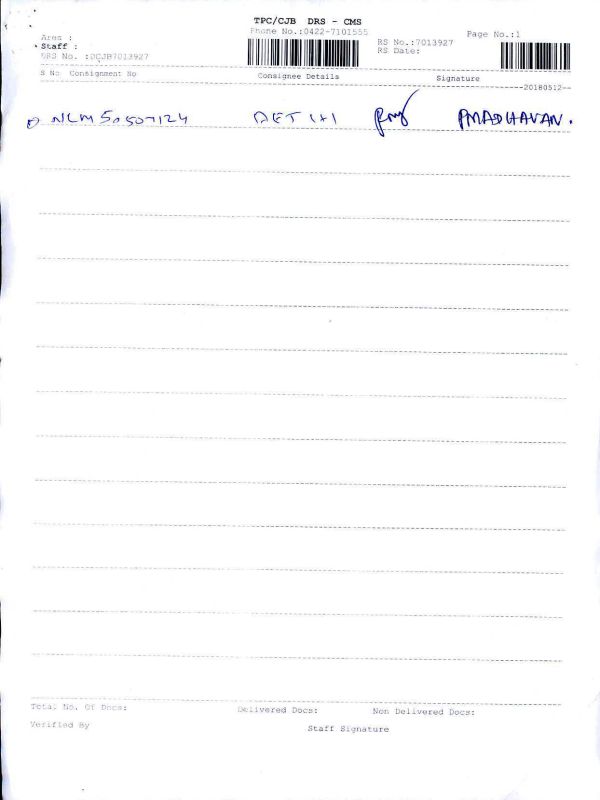 TPC/CJB DRS - CMS
Phone No.:0422-7101555
Area :
RS No.:7013927
Page No.:1
Staff :
RS Date:
DRS No. :DCJB7013927
S No Consignment No Consignee Details Signature
20180512
1) NLM 50507124 PMADHAVAN.
Total No. Of Docs: Delivered Docs: Non Delivered Docs:
Verified By Staff Signature